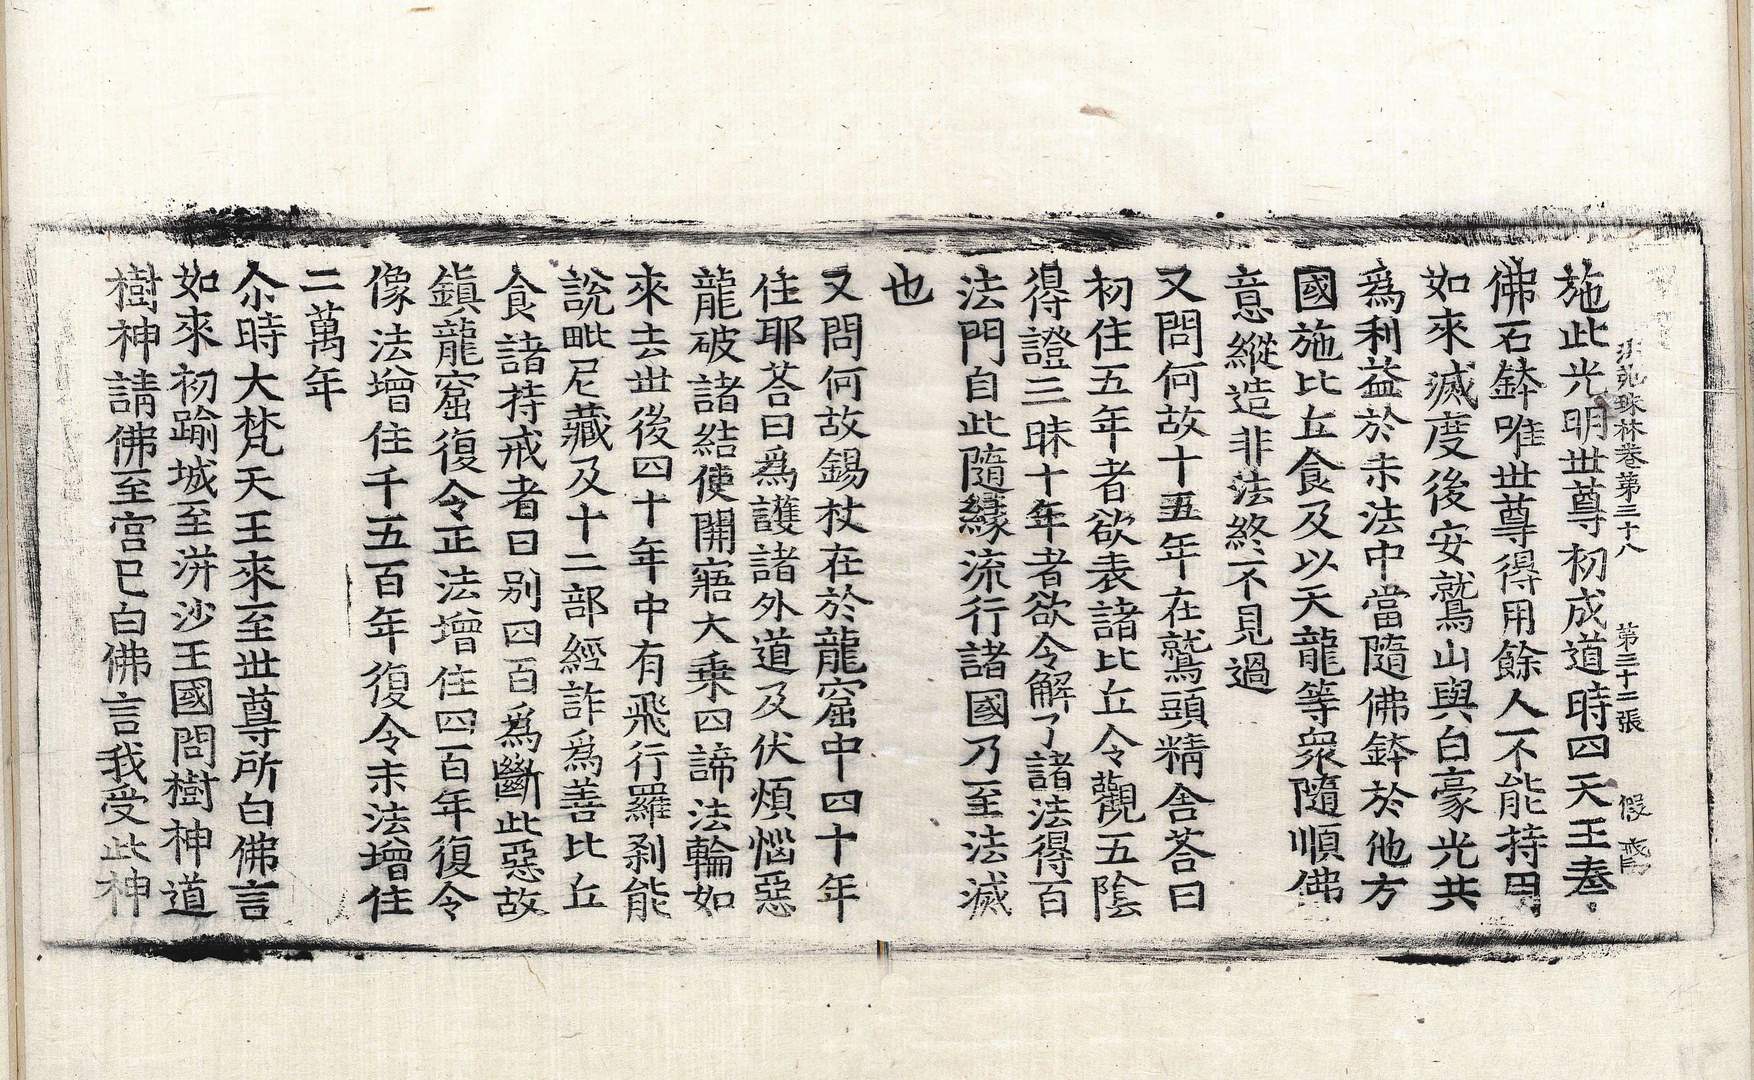 法苑珠林卷第三十八 第三十二張 假
施此光明世尊初成道時四天王奉
佛石鉢唯世尊得用餘人不能持用
如來滅度後安鷲山與白豪光共
爲利益於末法中當隨佛鉢於他方
國施比丘食及以天龍等衆隨順佛
意縱造非法終不見過
又問何故十五年在鷲頭精舍荅曰
初住五年者欲表諸比丘令觀五陰
得證三昧十年者欲令解了諸法得百
法門自此隨緣流行諸國乃至法滅
也
又問何故錫杖在於龍窟中四十年
住耶荅曰爲護諸外道及伏煩惱惡
龍破諸結使開寤大乗四諦法輪如
來去世後四十年中有飛行羅刹能
說毗尼藏及十二部經詐爲善比丘
食諸持戒者日别四百爲斷此惡故
鎭龍窟復令正法增住四百年復令
像法增住千五百年復令末法增住
二萬年
尒時大梵天王來至世尊所白佛言
如來初踰城至洴沙王國問樹神道
樹神請佛至宫已白佛言我受此神